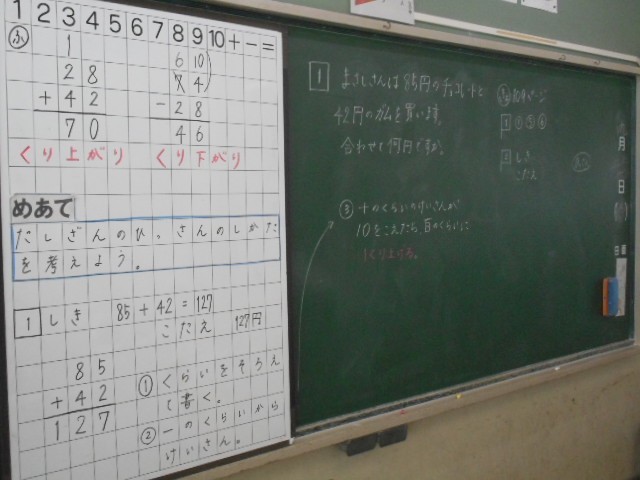 1 2 3 4 5 6 7 8 9 10 + - =
ふ
1
28
+ 42
70
くり上がり
6 10
7 4
- 28
46
くり下がり
めあて
たしざんのひっさんのしかた
を考えよう。
1 しき 85 + 42 = 127
こたえ 127円
85
+ 42
127
① くらいをそろえ
て書く。
② 一のくらいから
けいさん。
1 よしさんは85円のチョコレートと
42円のガムを買います。
合わせて何円ですか。
③ 十のくらいのけいさんが
10をこえたら、百のくらいに
1くり上げる。
ページ
1
2 しき
こたえ
月
日
日直